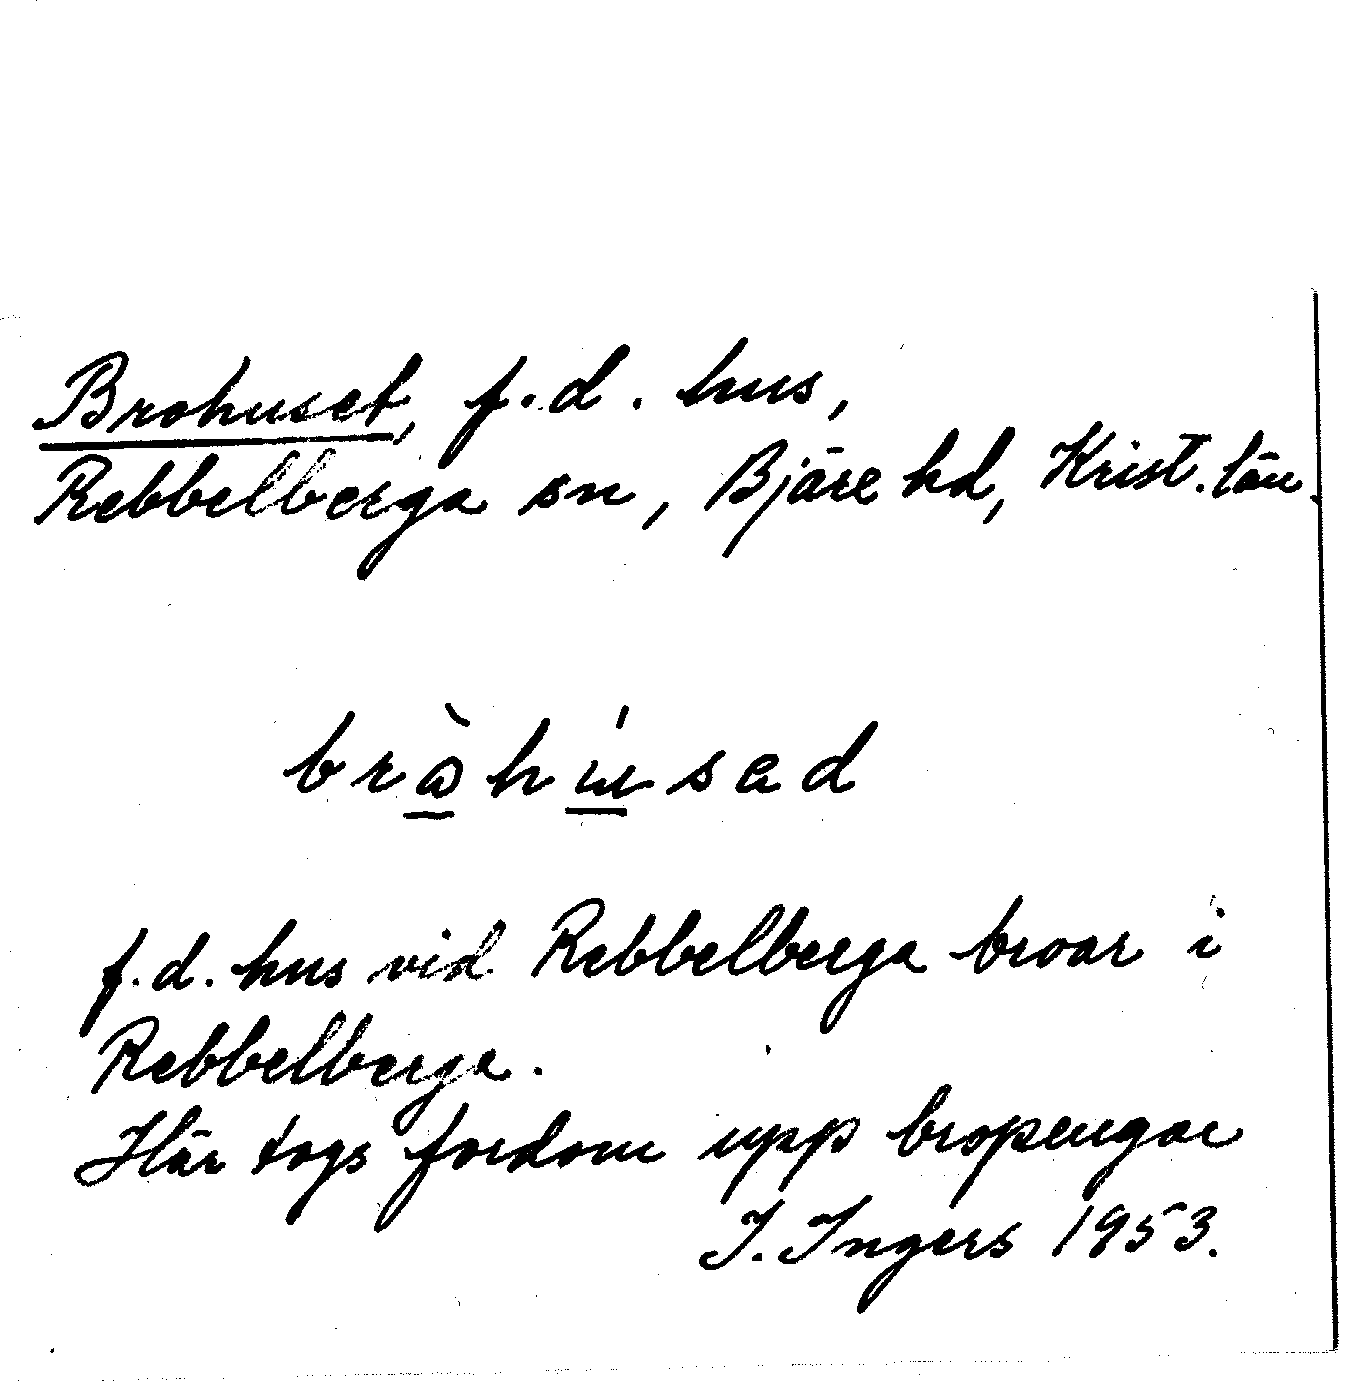 Brohuset, f.d. hus,
Rebbelberga sn, Bjäre hd, Krist. län.
f.d. hus vid Rebbelberga broar i
Rebbelberga.
Här togs fordom upp bropengar
I. Ingers 1953.